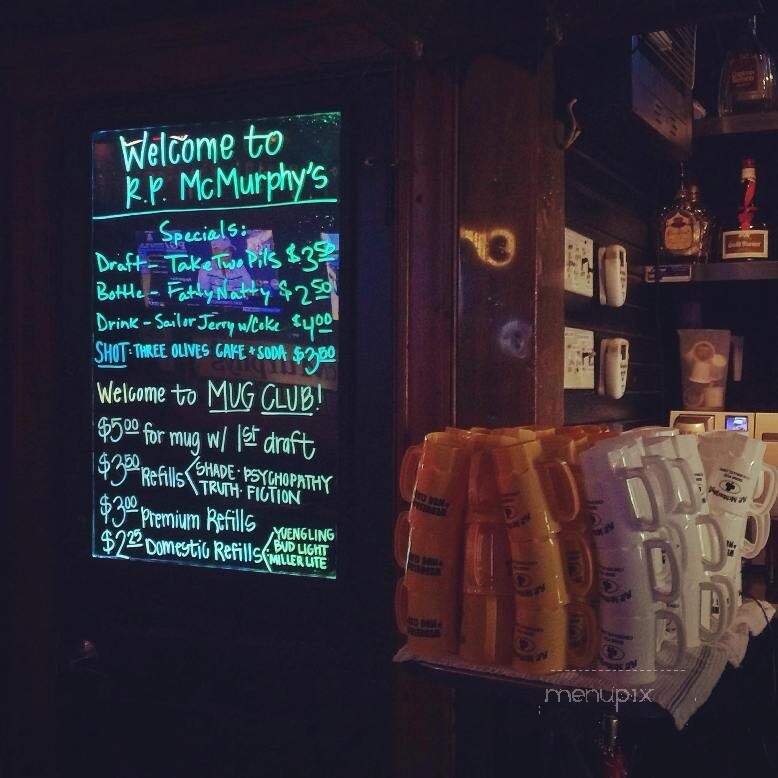 Welcome to
R.P. McMurphy's
Specials:
Draft - Take Two Pils $3.50
Bottle - Fatty Natty $2.50
Drink - Sailor Jerry w/Coke $4.00
SHOT: THREE OLIVES CAKE + SODA $3.50
Welcome to MUG CLUB!
$5.00 for mug w/ 1st draft
$3.50 Refills < SHADE · PSYCHOPATHY
TRUTH · FICTION
$3.00 Premium Refills
$2.25 Domestic Refills < YUENGLING
BUD LIGHT
MILLER LITE
menupix